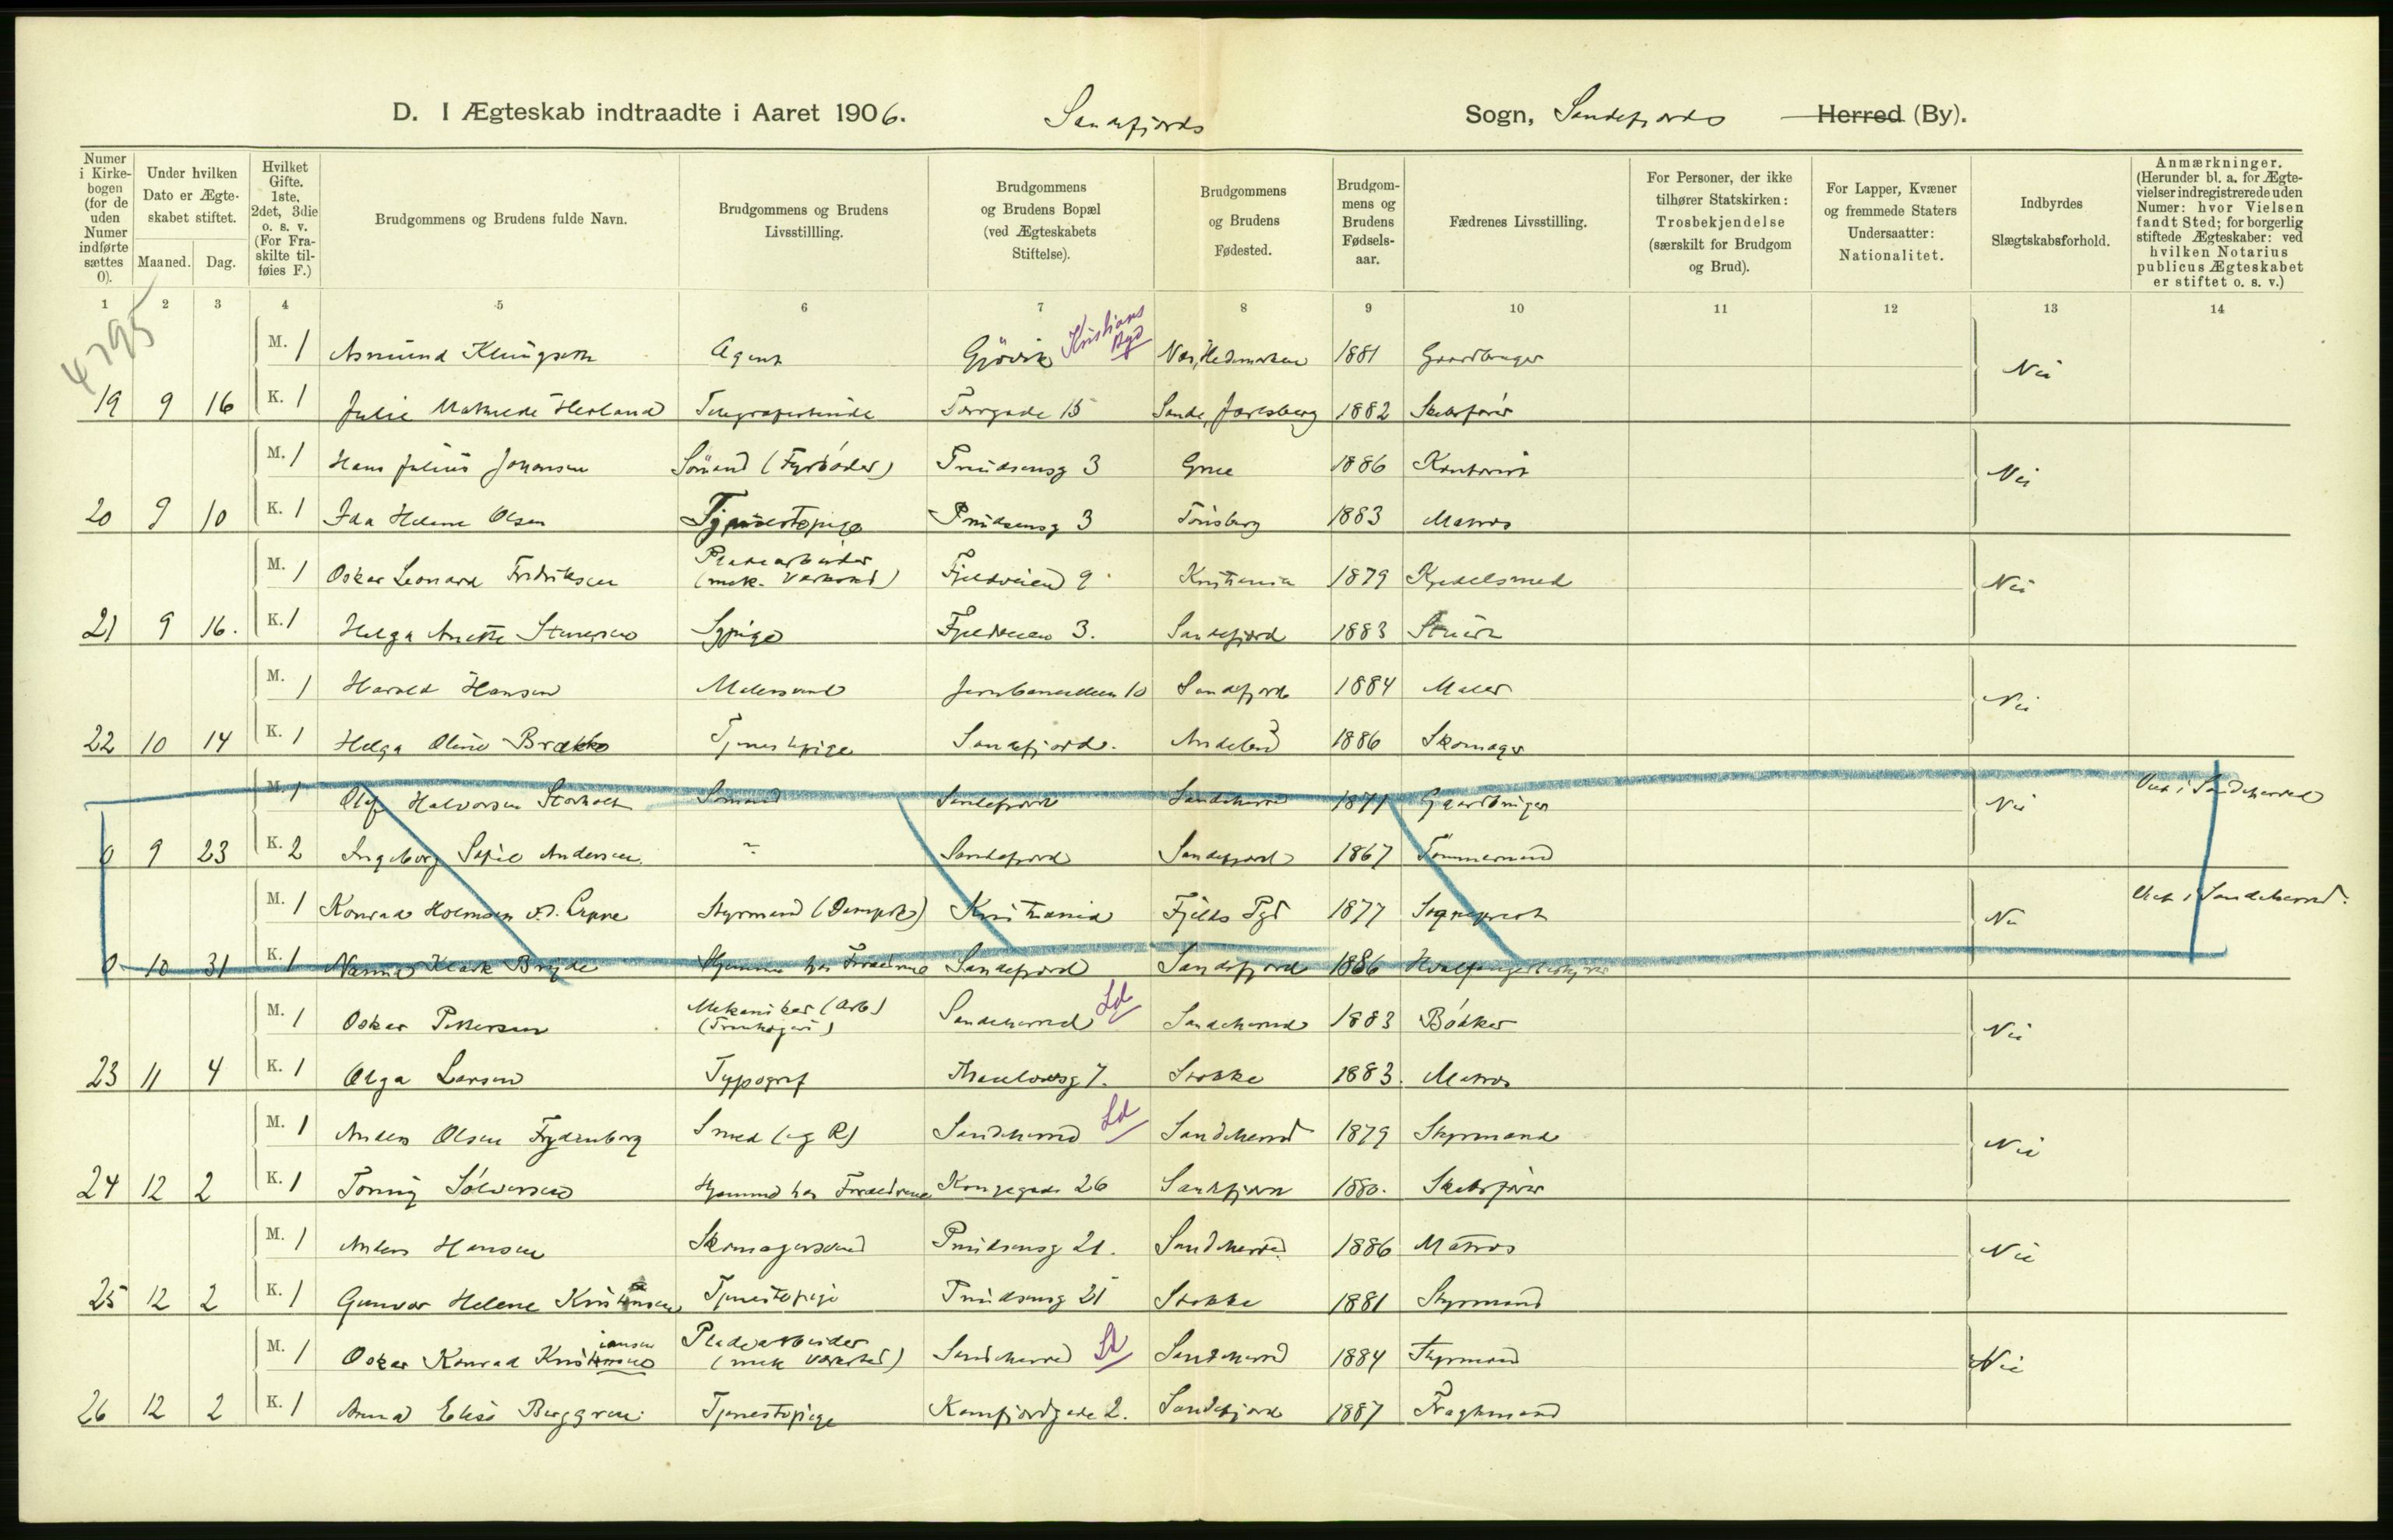 D. I Ægteskab indtraadte i Aaret 1906. Sandefjords Sogn, Sandefjords Herred (By).
Numer i Kirkebogen (for de uden Numer indførte sættes 0).
Under hvilken Dato er Ægteskabet stiftet.
Maaned. Dag.
Hvilket Gifte. 1ste, 2det, 3die o. s. v. (For Fraskilte tilføies F.)
Brudgommens og Brudens fulde Navn.
Brudgommens og Brudens Livsstillling.
Brudgommens og Brudens Bopæl (ved Ægteskabets Stiftelse).
Brudgommens og Brudens Fødested.
Brudgommens og Brudens Fødselsaar.
Fædrenes Livsstilling.
For Personer, der ikke tilhører Statskirken: Trosbekjendelse (særskilt for Brudgom og Brud).
For Lapper, Kvæner og fremmede Staters Undersaatter: Nationalitet.
Indbyrdes Slægtskabsforhold.
Anmærkninger. (Herunder bl. a. for Ægtevielser indregistrerede uden Numer: hvor Vielsen fandt Sted; for borgerlig stiftede Ægteskaber: ved hvilken Notarius publicus Ægteskabet er stiftet o. s. v.)
1 2 3 4 5 6 7 8 9 10 11 12 13 14
4795
M. 1 Asmund Agent Gjøvik Kristians Nes, Hedemarken 1881 Gaardbruger Nei
19 9 16 K. 1 Julie Mathilde Torvgade 15 Sande, Jarlsberg 1882 Skibsfører
M. 1 Hans Julius Johansen Sömand (Fyrböder) Prindsensg 3 Grue 1886 Kontorist Nei
20 9 10 K. 1 Ida Helene Olsen Tjenestepige Prindsensg 3 Tönsberg 1883 Matros
M. 1 Oskar Leonard Fredriksen Pladearbeider (mek. Værksted) Fjeldveien 9 Kristiania 1879 Kjedelsmed Nei
21 9 16. K. 1 Helga Anette Sypige Fjeldveien 3. Sandefjord 1883 Stuert
M. 1 Harald Hansen Malersvend 10 Sandefjord 1884 Maler Nei
22 10 14 K. 1 Helga Oline Brække Tjenestepige Sandefjord. Andebu 1886 Skomager
M. 1 Olaf Halvorsen Storholt Sömand Sandefjord Sandeherred 1871 Gaardbruger Nei Viet i Sandeherred
0 9 23 K. 2 Ingeborg Sofie Andersen Sandefjord Sandefjord 1867 Tömmermand
M. 1 Konrad Holmsen v. d. Lippe Styrmand (Dampsk) Kristiania Fjelds Pgd 1877 Sogneprest Nei Viet i Sandeherred.
0 10 31 K. 1 Nanna Klark Bryde Hjemme hos Forældrene Sandefjord Sandefjord 1886
M. 1 Oskar Pettersen Mekaniker (Arb) Sandeherred Ld Sandeherred 1883 Bödker Nei
23 11 4 K. 1 Olga Larsen Typograf Thaulowsg 7. Stokke 1883. Matros
M. 1 Anders Olsen Frydenborg Smed (eg R) Sandeherred Ld Sandeherred 1879 Styrmand Nei
24 12 2 K. 1 Sölversen Hjemme hos Forældrene Kongegade 26 Sandefjord 1880. Skibsfører
M. 1 Anders Hansen Skomagersvend Prindsensg 21. Sandeherred 1886 Matros Nei
25 12 2 K. 1 Gunvor Helene Kristensen Tjenestepige Prindsensg 21 Stokke 1881 Styrmand
M. 1 Oskar Konrad Kristiansen Pladearbeider (mek Værksted) Sandeherred Ld Sandeherred 1884 Styrmand Nei
26 12 2 K. 1 Anna Elise Berggren Tjenestepige Kamfjordgade 2. Sandefjord 1887 Fragtmand